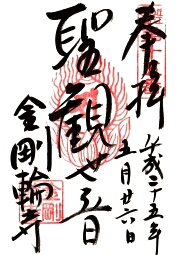 奉拝
平成二十五年
五月廿六日
聖觀世音
金剛輪寺